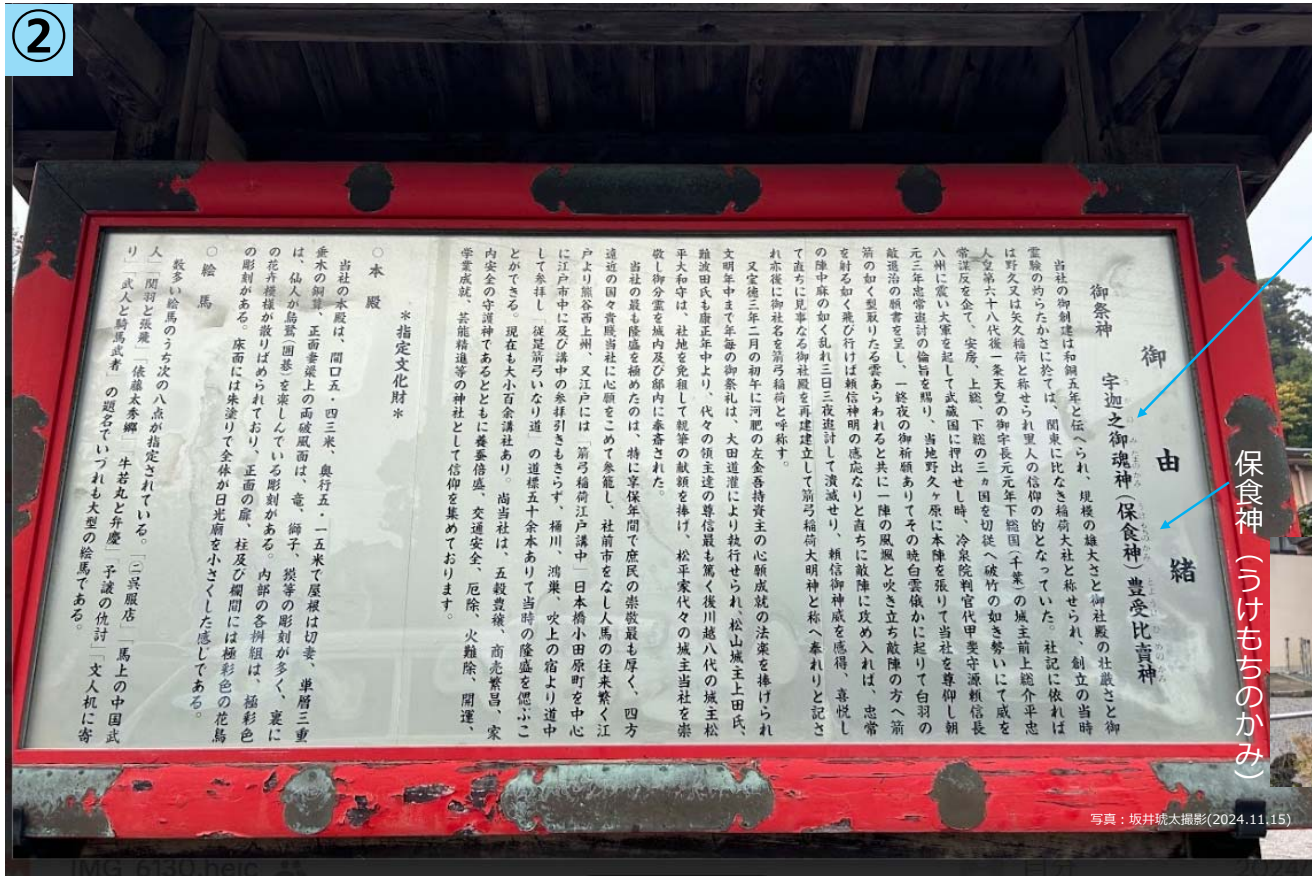 ②
御由緒
御祭神
宇迦之御魂神(保食神)豊受比賣神
当社の御創建は和銅五年と伝へられ、規模の雄大さと御社殿の壮厳さと御
霊験の灼らたかさに於ては、関東に比なき稲荷大社と称せられ、創立の当時
は野久又は矢久稲荷と称せられ里人の信仰の的となっていた。社記に依れば
人皇第六十八代後一条天皇の御宇長元元年下総国(千葉)の城主前上総介平忠
常謀反を企て、安房、上総、下総の三ヵ国を切従へ破竹の如き勢いにて威を
八州に震い大軍を起して武蔵国に押出せし時、冷泉院判官代甲斐守源頼信長
元三年忠常追討の倫旨を賜り、当地野久ヶ原に本陣を張りて当社を尊仰し朝
敵退治の願書を呈し、一終夜の御祈願ありてその暁白雲俄かに起りて白羽の
箭の如く型取りたる雲あらわれると共に一陣の風颯と吹き立ち敵陣の方へ箭
を射る如く飛び行けば頼信神明の感応なりと直ちに敵陣に攻め入れば、忠常
の陣中麻の如く乱れ三日三夜追討して潰滅せり、頼信御神威を感得、喜悦し
て直ちに見事なる御社殿を再建建立して箭弓稲荷大明神と称へ奉れりと記さ
れ亦後に御社名を箭弓稲荷と呼称す。
又宝徳三年二月の初午に河肥の左金吾持資主の心願成就の法楽を捧げられ
文明年中まで年毎の御祭礼は、大田道灌により執行せられ、松山城主上田氏、
難波田氏も康正年中より、代々の領主達の尊信最も篤く後川越八代の城主松
平大和守は、社地を免租して親筆の献額を捧げ、松平家代々の城主当社を崇
敬し御分霊を城内及び邸内に奉斎された。
当社の最も隆盛を極めたのは、特に享保年間で庶民の崇敬最も厚く、四方
遠近の国々貴賤当社に心願をこめて参籠し、社前市をなし人馬の往来繁く江
戸より熊谷西上州、又江戸には「箭弓稲荷江戸講中」日本橋小田原町を中心
に江戸市中に及び講中の参拝引きもきらず、桶川、鴻巣、吹上の宿より道中
して参拝し「従是箭弓いなり道」の道標五十余本ありて当時の隆盛を偲ぶこ
とができる。現在も大小百余講社あり。尚当社は、五穀豊穣、商売繁昌、家
内安全の守護神であるとともに養蚕倍盛、交通安全、厄除、火難除、開運、
学業成就、芸能精進等の神社として信仰を集めております。
*指定文化財*
○本殿
当社の本殿は、間口五・四三米、奥行五・一五米で屋根は切妻、単層三重
垂木の銅葺、正面妻梁上の両破風面は、竜、獅子、猨等の彫刻が多く、裏に
は、仙人が烏鷺(囲碁)を楽しんでいる彫刻がある。内部の各桝組は、極彩色
の花卉模様が散りばめられており、正面の扉、柱及び欄間には極彩色の花鳥
の彫刻がある。床面には朱塗りで全体が日光廟を小さくした感じである。
○絵馬
数多い絵馬のうち次の八点が指定されている。「三呉服店」「馬上の中国武
人」「関羽と張飛」「俵藤太秀郷」「牛若丸と弁慶」「予譲の仇討」「文人机に寄
り」「武人と騎馬武者」の題名でいづれも大型の絵馬である。
保食神(うけもちのかみ)
写真:坂井琥太撮影(2024.11.15)
IMG_6130.heic